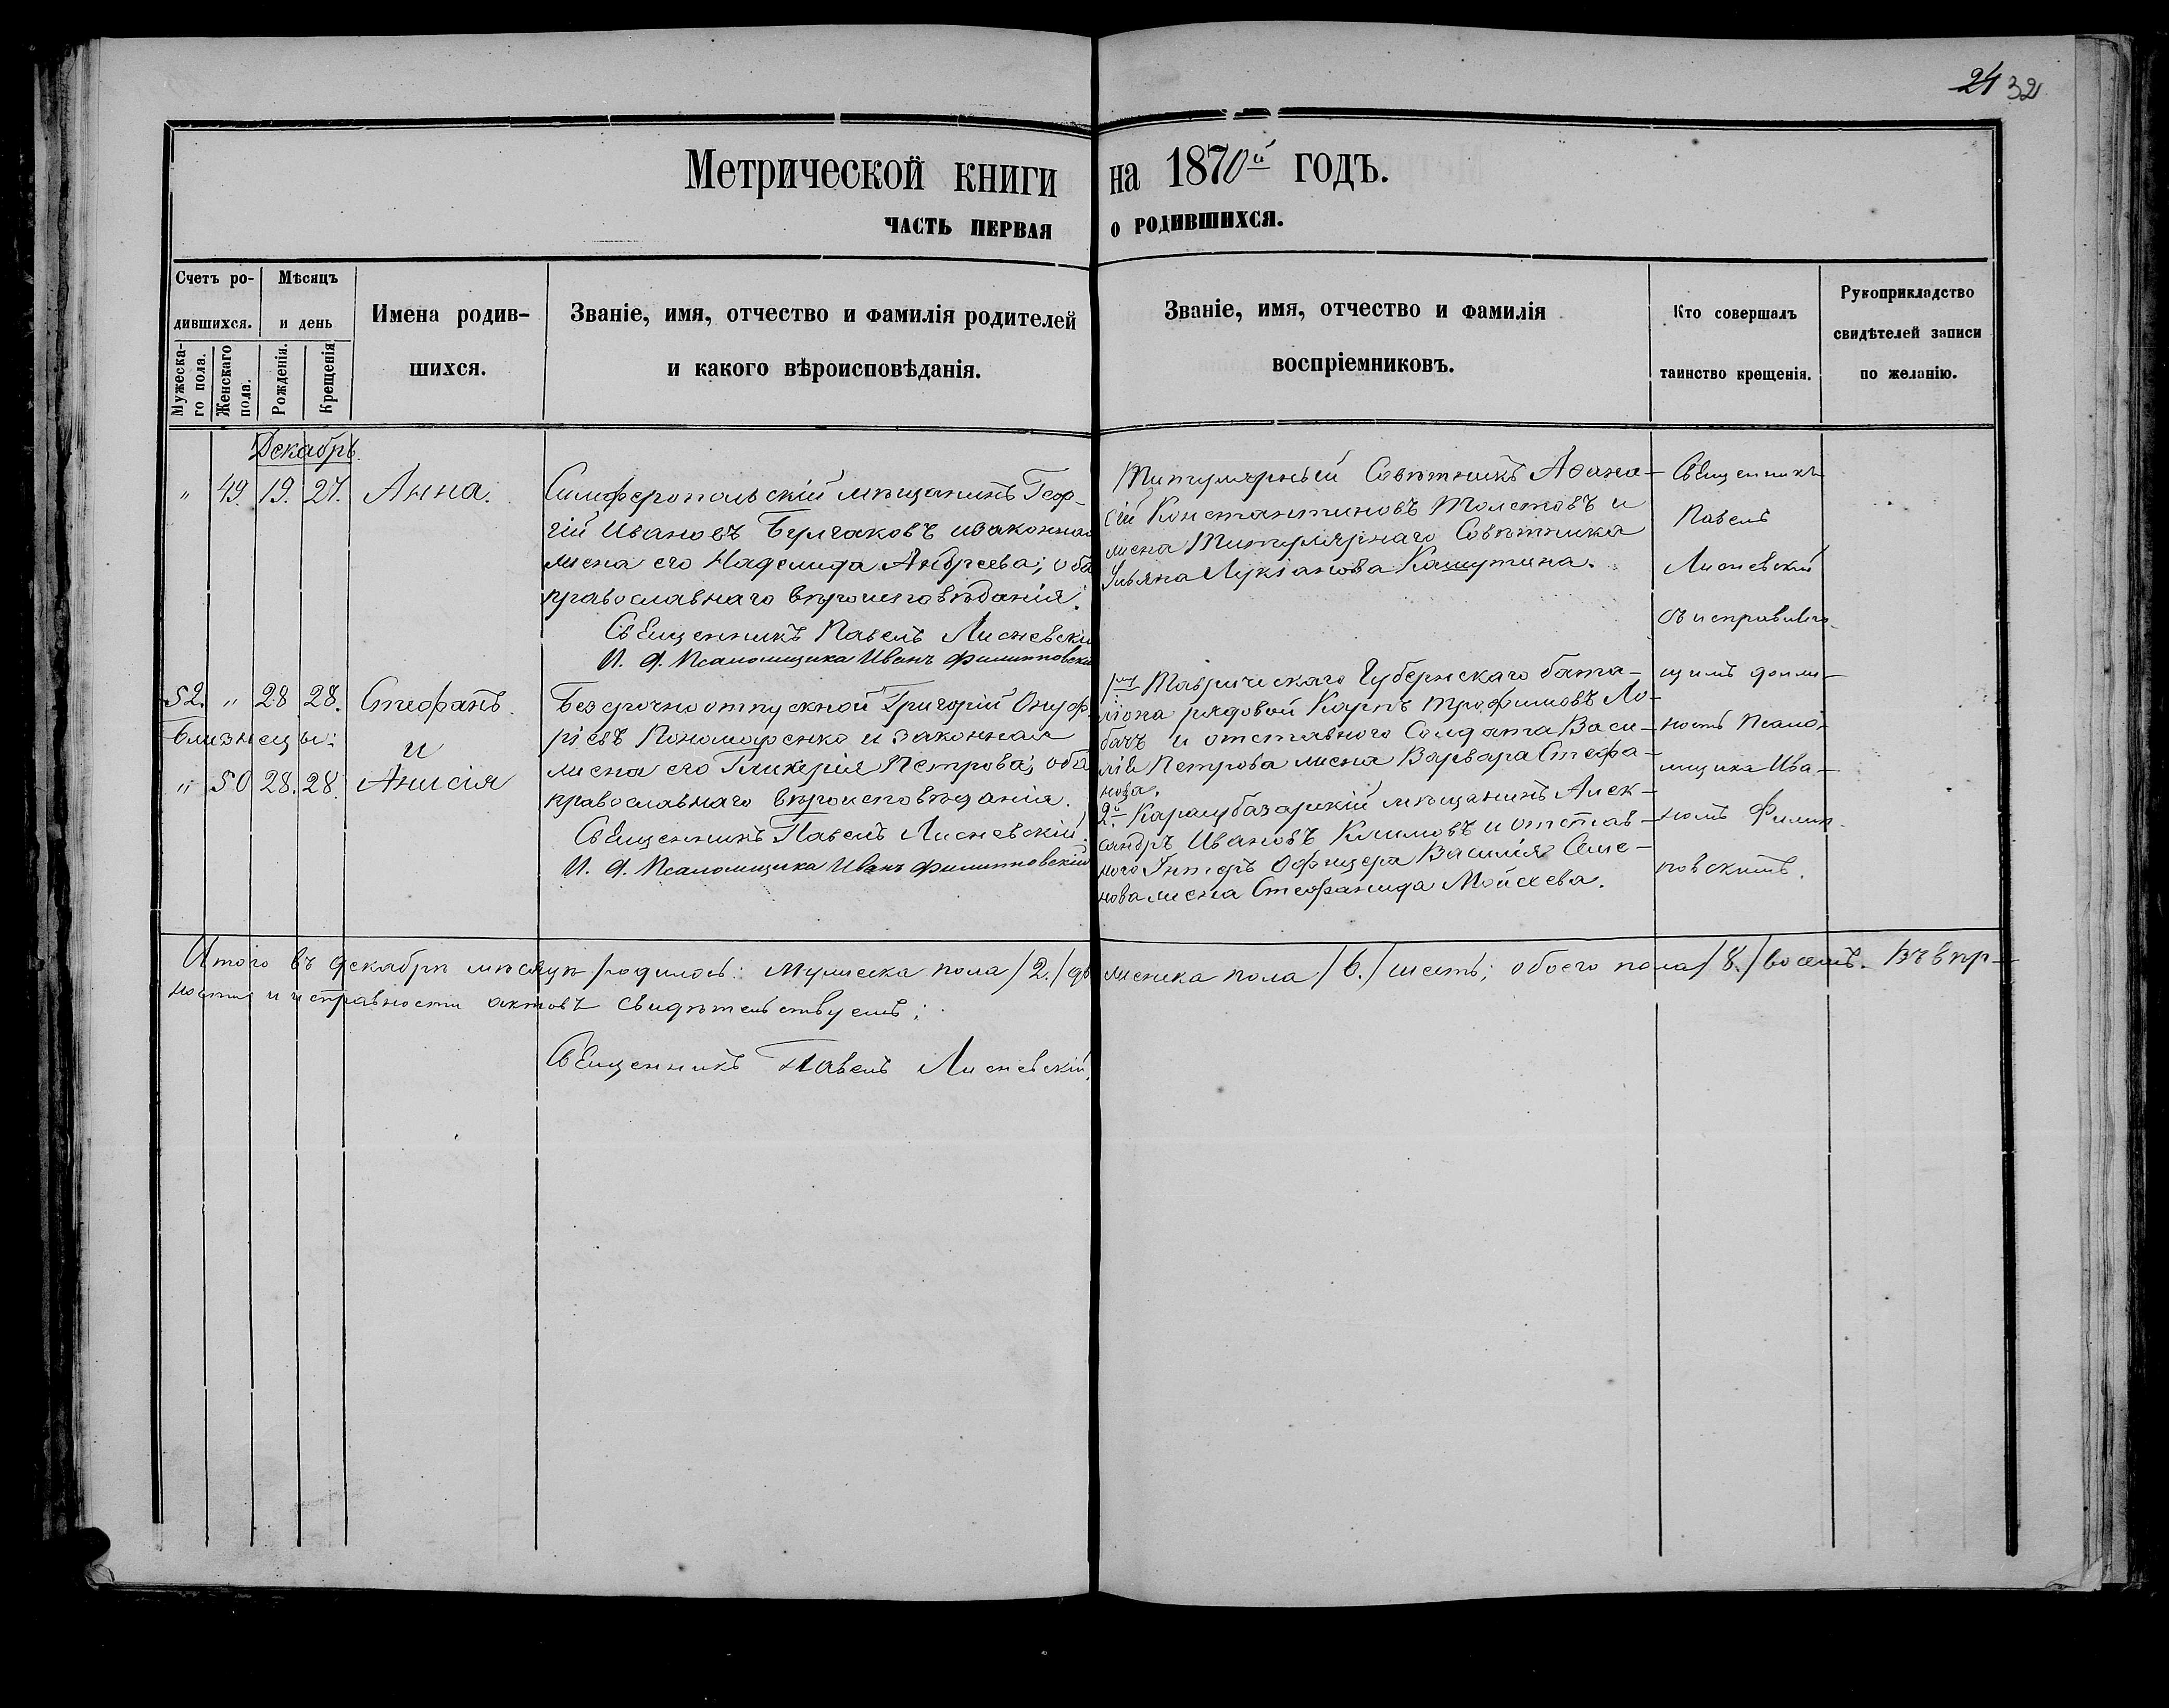 24 32
Метрической книги на 1870й годъ.
ЧАСТЬ ПЕРВАЯ О РОДИВШИХСЯ.
Счетъ ро-
дившихся.
Мужеска-
го пола.
Женскаго
пола.
Мѣсяцъ
и день
Рожденія.
Крещенія
Имена родив-
шихся.
Званіе, имя, отчество и фамилія родителей
и какого вѣроисповѣданія.
Званіе, имя, отчество и фамилія
воспріемниковъ.
Кто совершалъ
таинство крещенія.
Рукоприкладство
свидѣтелей записи
по желанію.
Декабрь.
" 49 19. 27. Анна.
Симферопольскій мѣщанинъ Геор-
гій Ивановъ Булгаковъ и законная
жена его Надежда Андреева; оба
православнаго вѣроисповѣданія.
Священникъ Павелъ Лисневскій
И. д. Псаломщика Иванъ Филипповскій
Титулярный Совѣтникъ Афана-
сій Константиновъ Толстовъ и
жена Титулярнаго Совѣтника
Ульяна Лукіанова Кашутина.
52. " 28 28. Стефанъ.
Близнецы: и
" 50 28. 28. Анисія
Безсрочноотпускной Григорій Онуф-
ріевъ Пономаренко и законная
жена его Гликерія Петрова; оба
православнаго вѣроисповѣданія.
Священникъ Павелъ Лисневскій.
И. д. Псаломщика Иванъ Филипповскій
Таврическаго Губернскаго бата-
ліона рядовой Карпъ Трофимовъ Ло-
бачъ и отставного Солдата Васи-
лія Петрова жена Варвара Стефа-
нова.
2й Карасубазарскій мѣщанинъ Алек-
сандръ Ивановъ Климовъ и отстав-
ного Унтеръ Офицера Василія Семе-
нова жена Стефанида Мойсеева.
Священникъ
Павелъ
Лисневскій
съ исправляю-
щимъ долж-
ность Псало-
мщика Ива-
номъ Филип-
повскимъ.
Итого въ декабрѣ мѣсяцѣ родилось: Мужеска пола /2./ два женска пола /6./ шесть; обоего пола /8./ восемь. Въ вѣр-
ности и исправности актовъ свидѣтельствуемъ:
Священникъ Павелъ Лисневскій.